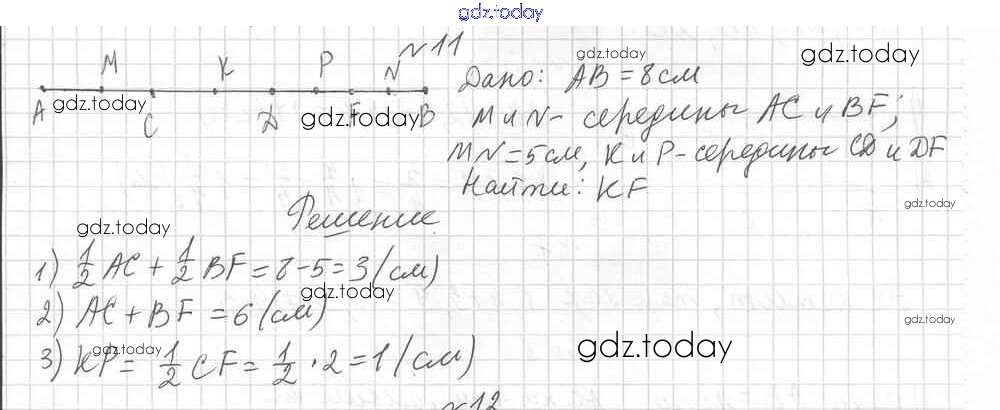 gdz.today
№11
gdz.today
gdz.today
M K P N
Дано: AB = 8см
A gdz.today C D gdz.today F B
M и N - середины AC и BF;
MN = 5см, K и P - середины CD и DF
Найти: KF
gdz.today
gdz.today
Решение
1) 1/2 AC + 1/2 BF = 8 - 5 = 3 (см)
gdz.today
2) AC + BF = 6 (см)
gdz.today
gdz.today
3) KP = 1/2 CF = 1/2 · 2 = 1 (см)
gdz.today
№12